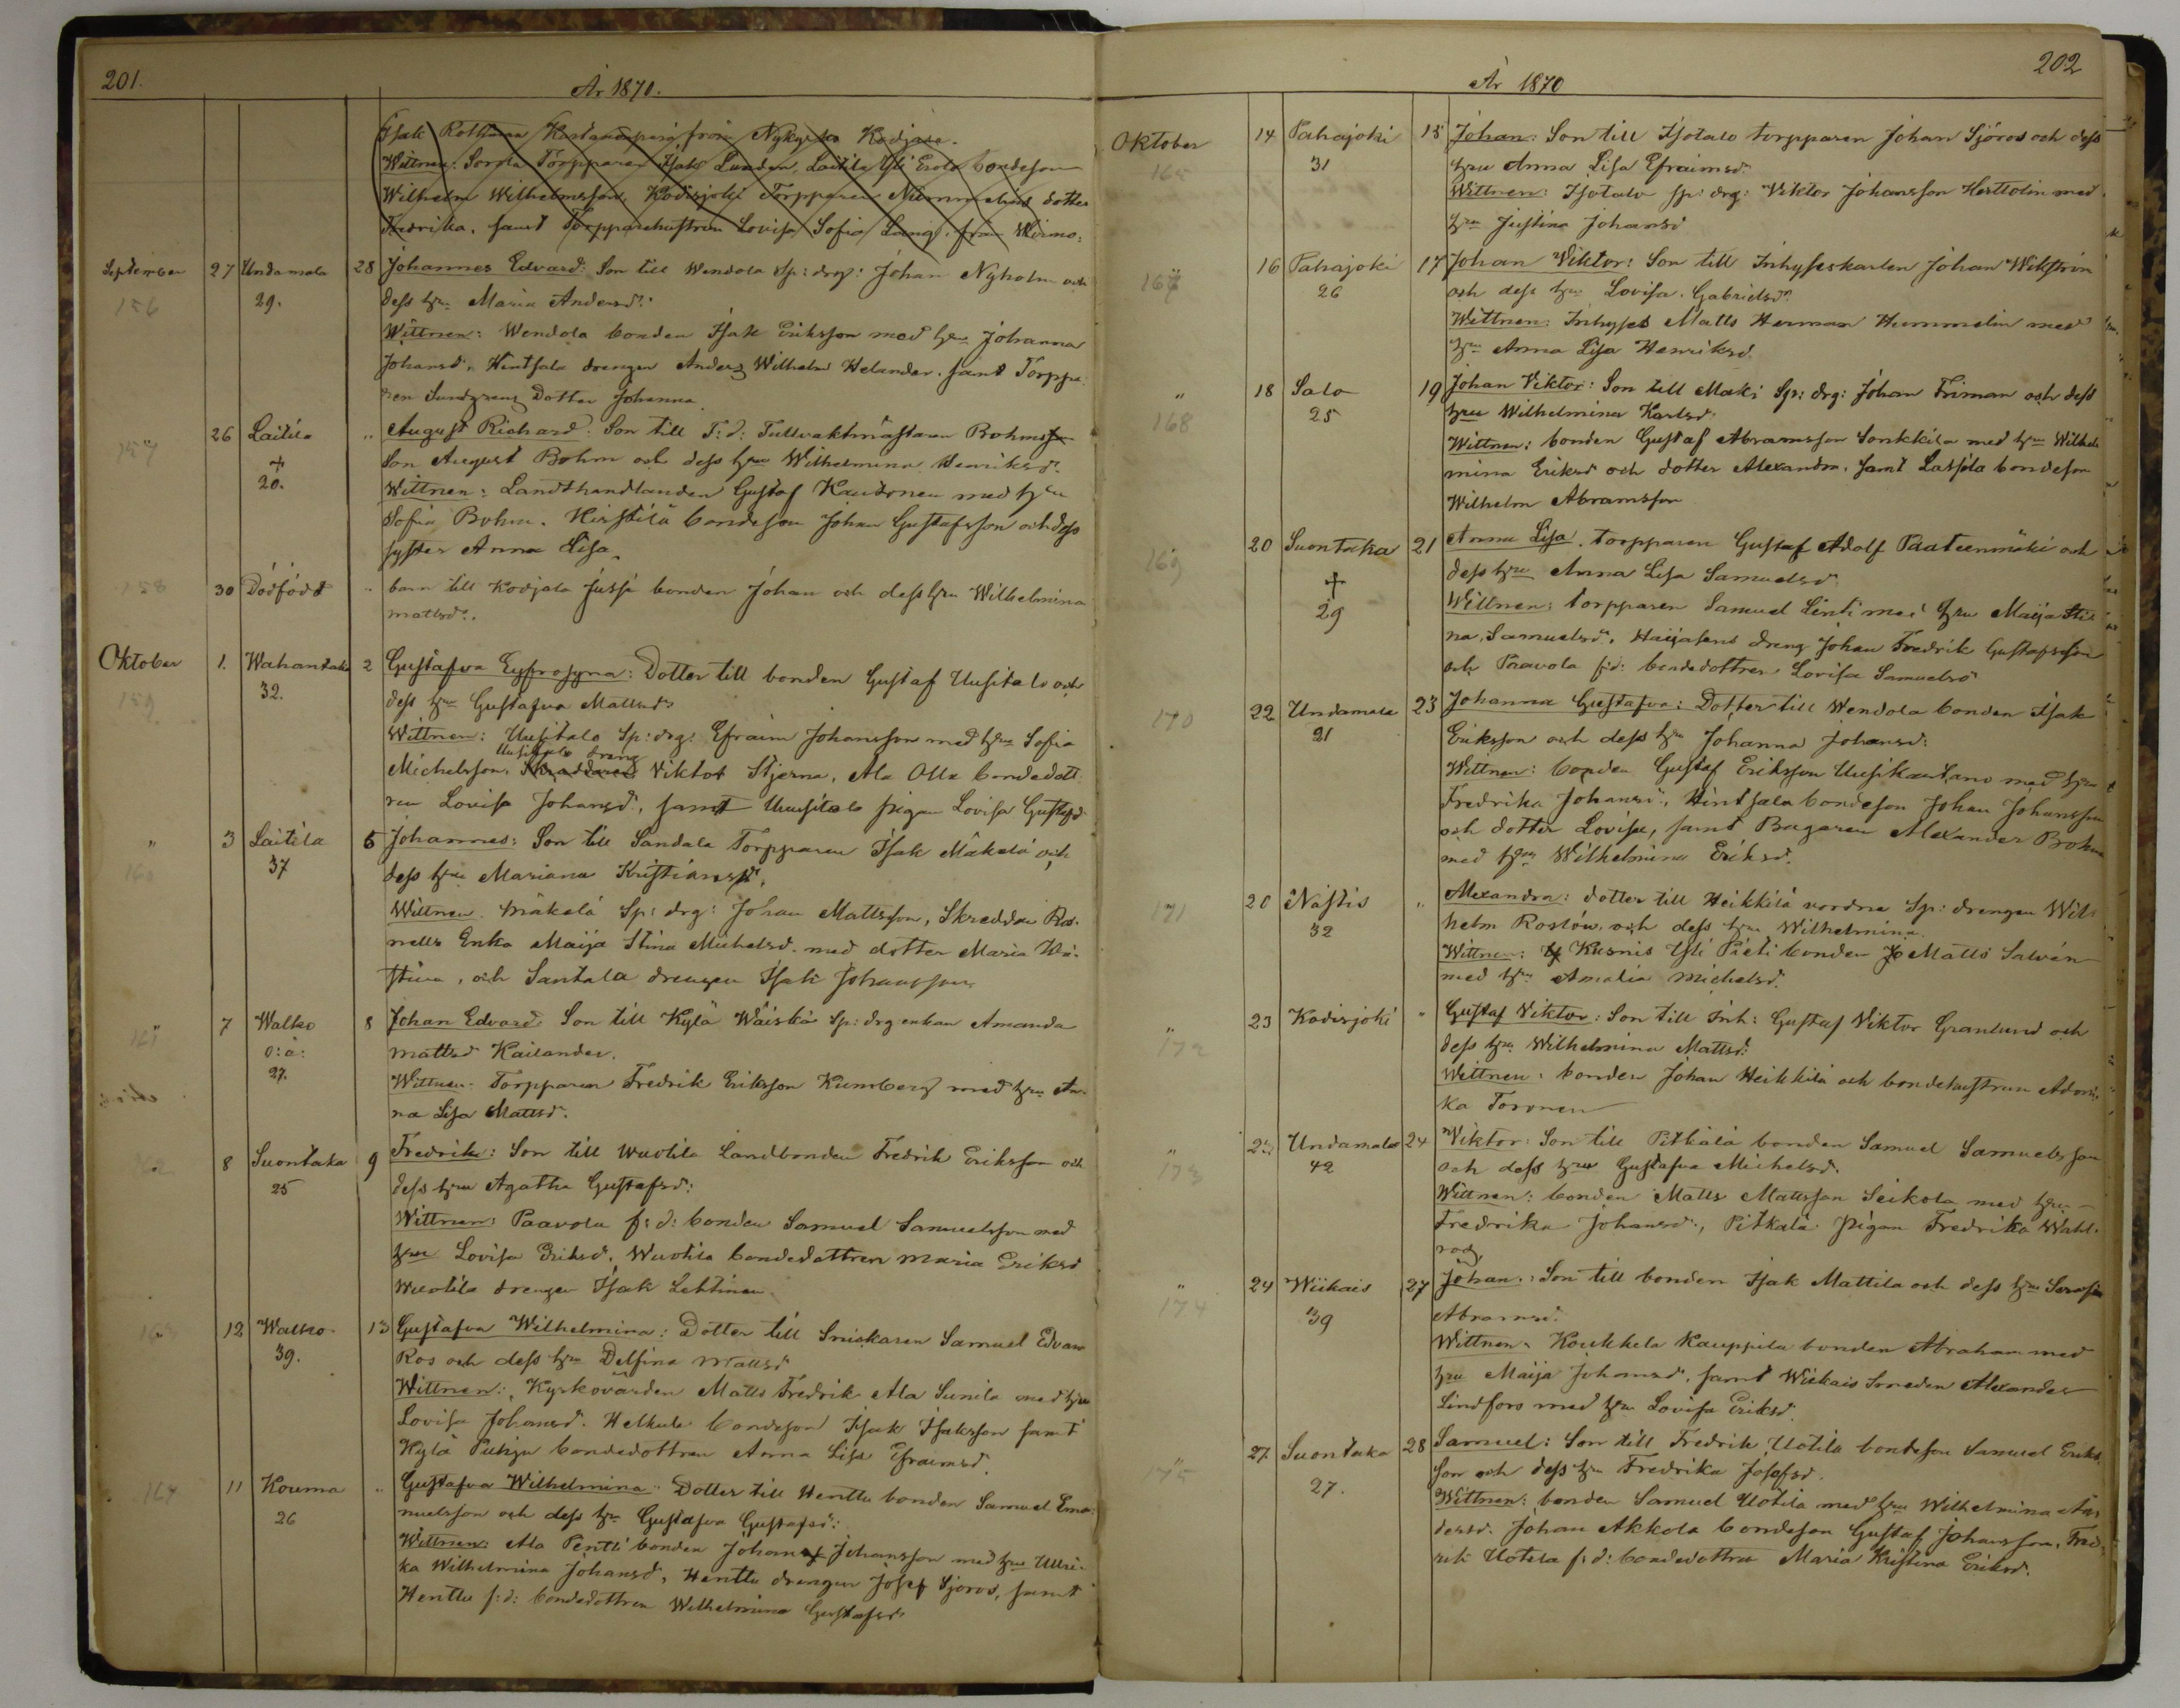 201.
År 1870.
Isak
Wittnen: Torpparen Isak Lunden, Laitila Yli Erola bondeson
Wilhelm Wilhelmsson, Kodisjoki Torpparen Nummelins dotter
Fredrika, samt Torpparehustrun Lovisa Sofia Lang från Wirmo.
September 27 Undamala 28 Johannes Edvard: Son till Wendola Sp: drg: Johan Nyholm och
156 29. dess hru Maria Andersd:
Wittnen: Wendola bonden Isak Eriksson med hru Johanna
Johansd. Hintsala drengen Anders Wilhelm Helander, samt Torppa-
ren Sundgrens Dotter Johanna
157 26 Laitila " August Richard: Son till F:d: Tullvaktmästaren Bohms
Son August Bohm och dess hru Wilhelmina Henriksd.
+ 20. Wittnen: Landthandlanden Gustaf Kautonen med hru
Sofia Bohm. Hirstilä bondeson Johan Gustafsson och dess
syster Anna Lisa.
158 30 Dödfödt " barn till Kodjala Jussi bonden Johan och dess hru Wilhelmina
mattsd:.
Oktober 1. Wahantaka 2 Gustafva Eyfrosyna: Dotter till bonden Gustaf Uusitalo och
159 32. dess hru Gustafva Mattsd:
Wittnen: Uusitalo Sp: drg: Efraim Johansson med hru Sofia
Uusitalo dreng
Michelsson, Viktor Stjerna, Ala Olla bondedott
ren Lovisa Johansd, samt Uusitalo pigan Lovisa Gustafsd
" 3 Laitila 5 Johannes: Son till Sandala Torpparen Isak Mäkelä och
160 37 dess hru Mariana Kristiansd.
Wittnen. Mäkelä Sp: drg: Johan Mattsson, Skreddar Ros-
nells Enka Maija Stina Michelsd. med dotter Maria
och Santala drengen Isak Johansson
" 7 Walko 8 Johan Edvard Son till Kylä Wäiskä Sp: drg enkan Amanda
161 o: ä: mattsd Kailander.
27. Wittnen: Torpparen Fredrik Eriksson Kumberg med hru An-
na Lisa Mattsd.
8 Suontaka 9 Fredrik: Son till Wuotila Landbonden Fredrik Eriksson och
25 dess hru Agatha Gustafsd:
Wittnen: Paavola f: d: bonden Samuel Samuelsson med
hru Lovisa Eriksd. Wuotila bondedottren Maria Eriksd
Wuotila drengen Isak Lehtinen.
163 12 Walko 13 Gustafva Wilhelmina: Dotter till Sniskaren Samuel Edvard
39. Ros och dess hru Delfina Mattsd
Wittnen: Kyrkovärden Matts Fredrik Ala Sunila med hru
Lovisa Johansd. Helkula bondeson Isak Isaksson samt
Kylä bondedottren Anna Lisa Efraimsd.
164 11 Kouma " Gustafva Wilhelmina Dotter till Henttu bonden Samuel Ema-
26 nuelsson och dess hru Gustafva Gustafsd:
Wittnen: Ala Pentti bonden Johan Johansson med hru Ulri-
ka Wilhelmina Johansd, Henttu drengen Josef Sjoros, samt
Henttu f: d: bondedottren Wilhelmina Gustafsd
202
År 1870
Oktober 14 Pahajoki 15 Johan: Son till Isotalo torpparen Johan Sjöros och dess
165 31 hru Anna Lisa Efraimsd:
Wittnen: Isotalo sp: drg: Viktor Johansson Herttolin med
hru Justina Johansd
" 16 Pahajoki 17 Johan Viktor: Son till Inhyseskarlen Johan Wikström
167 26 och dess hru Lovisa Gabrielsd:
Wittnen: Inhyses Matts Herman Hummelin med
hru Anna Lisa Henriksd.
" 18 Salo 19 Johan Viktor: Son till Mäki Sp: drg: Johan Friman och dess
168 25 hru Wilhelmina Karlsd.
Wittnen: bonden Gustaf Abramsson Sonkkila med hru Wilhel-
mina Eriksd och dotter Alexandra, samt Lassila bondeson
Wilhelm Abramsson
169 20 Suontaka 21 Anna Lisa. torpparen Gustaf Adolf Paateenmäki och
+ dess hru Anna Lisa Samuelsd
29 Wittnen: torpparen Samuel Lenti med hru Maija Sti
na Samuelsd. dreng Johan Fredrik Gustafsson
och Paavola f:d: bondedottren Lovisa Samuelsd
170 22 Undamala 23 Johanna Gustafva: Dotter till Wendola bonden Isak
21 Eriksson och dess hru Johanna Johansd:
Wittnen: bonden Gustaf Eriksson Uusikartano med hru
Fredrika Johansd:, Hintsala bondeson Johan Johansson
och dotter Lovisa, samt Bagaren Alexander Bohm
med hru Wilhelmina Eriksd.
171 20 Nästis " Alexandra: dotter till Heikkilä vordne Sp: drengen Wil-
32 helm Roslöw och dess hru Wilhelmina
Wittnen: Kusnis Yli Pieti bonden Matts Salvén
med hru Amalia Michelsd.
" 23 Kodisjoki " Gustaf Viktor: Son till Inh: Gustaf Viktor Granlund och
172 dess hru Wilhelmina Mattsd:
Wittnen: bonden Johan Heikkilä och bondehustrun
ka Toronen
" 23 Undamala 24 Viktor: Son till Pitkälä bonden Samuel Samuelsson
173 42 och dess hru Gustafva Michelsd.
Wittnen: bonden Matts Mattsson Seikola med hru
Fredrika Johansd:, Pitkälä pigan Fredrika Wahl-
roos
" 24 Wiikais 27 Johan: Son till bonden Isak Mattila och dess hru Serafia
174 39 Abramsd:
Wittnen: Koukkela Kauppila bonden Abraham med
hru Maija Johansd, samt Wiikais Smeden Alexander
Lindfors med hru Lovisa Eriksd.
175 27 Suontaka 28 Samuel: Son till Fredrik Uotila bondeson Samuel Eriks-
27. son och dess hru Fredrika Josefsd.
Wittnen: bonden Samuel Uotila med hru Wilhelmina An-
dersd. Johan Akkola bondeson Gustaf Johansson, Fred-
rik Uotila f: d: bondedottren Maria Kristina Eriksd.